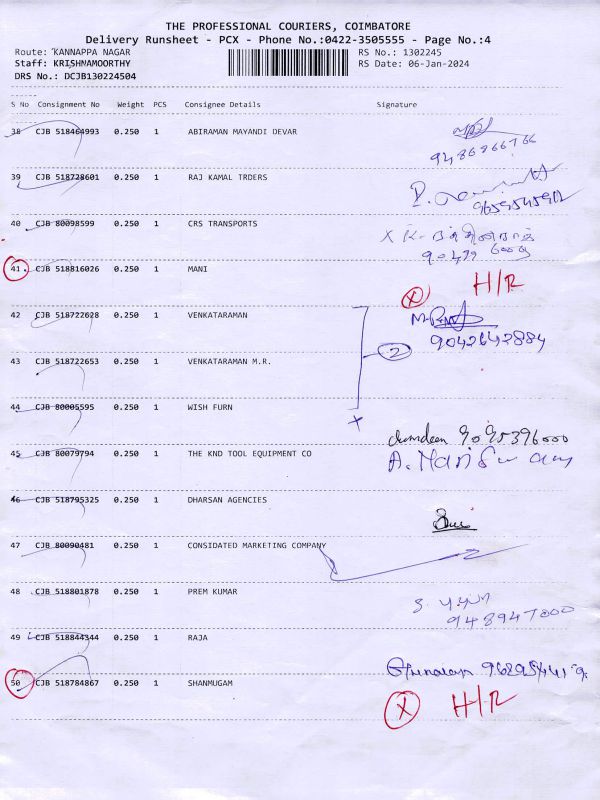 THE PROFESSIONAL COURIERS, COIMBATORE
Delivery Runsheet - PCX - Phone No.:0422-3505555 - Page No.:4
Route: KANNAPPA NAGAR RS No.: 1302245
Staff: KRISHNAMOORTHY RS Date: 06-Jan-2024
DRS No.: DCJB130224504
S No Consignment No Weight PCS Consignee Details Signature
38 CJB 518464993 0.250 1 ABIRAMAN MAYANDI DEVAR
9486866766
39 CJB 518728601 0.250 1 RAJ KAMAL TRDERS
40 CJB 80098599 0.250 1 CRS TRANSPORTS
X K.
41 CJB 518816026 0.250 1 MANI
X H/R
42 CJB 518722628 0.250 1 VENKATARAMAN
9042642884
2
43 CJB 518722653 0.250 1 VENKATARAMAN M.R.
44 CJB 80005595 0.250 1 WISH FURN
X
9095396000
45 CJB 80079794 0.250 1 THE KND TOOL EQUIPMENT CO
46 CJB 518795325 0.250 1 DHARSAN AGENCIES
47 CJB 80090481 0.250 1 CONSIDATED MARKETING COMPANY
48 CJB 518801878 0.250 1 PREM KUMAR
948947000
49 CJB 518844344 0.250 1 RAJA
50 CJB 518784867 0.250 1 SHANMUGAM
X H/R